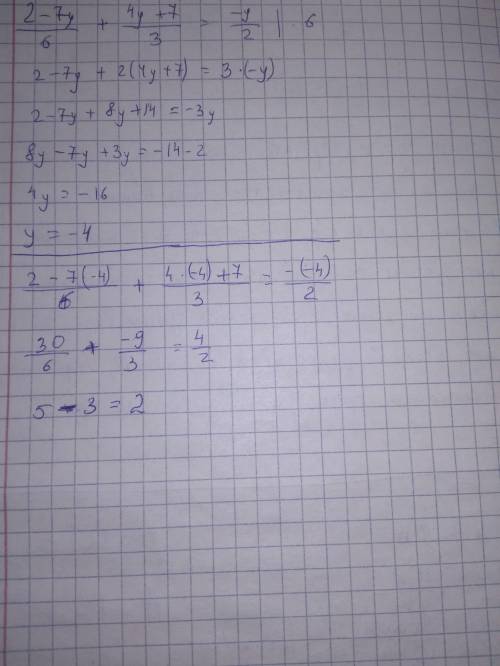 (2-7y)/6 + (4y+7)/3 = (-y)/2 | · 6
2-7y + 2(4y+7) = 3·(-y)
2-7y + 8y+14 = -3y
8y-7y+3y = -14-2
4y = -16
y = -4
(2-7(-4))/6 + (4·(-4)+7)/3 = (-(-4))/2
30/6 + (-9)/3 = 4/2
5-3 = 2